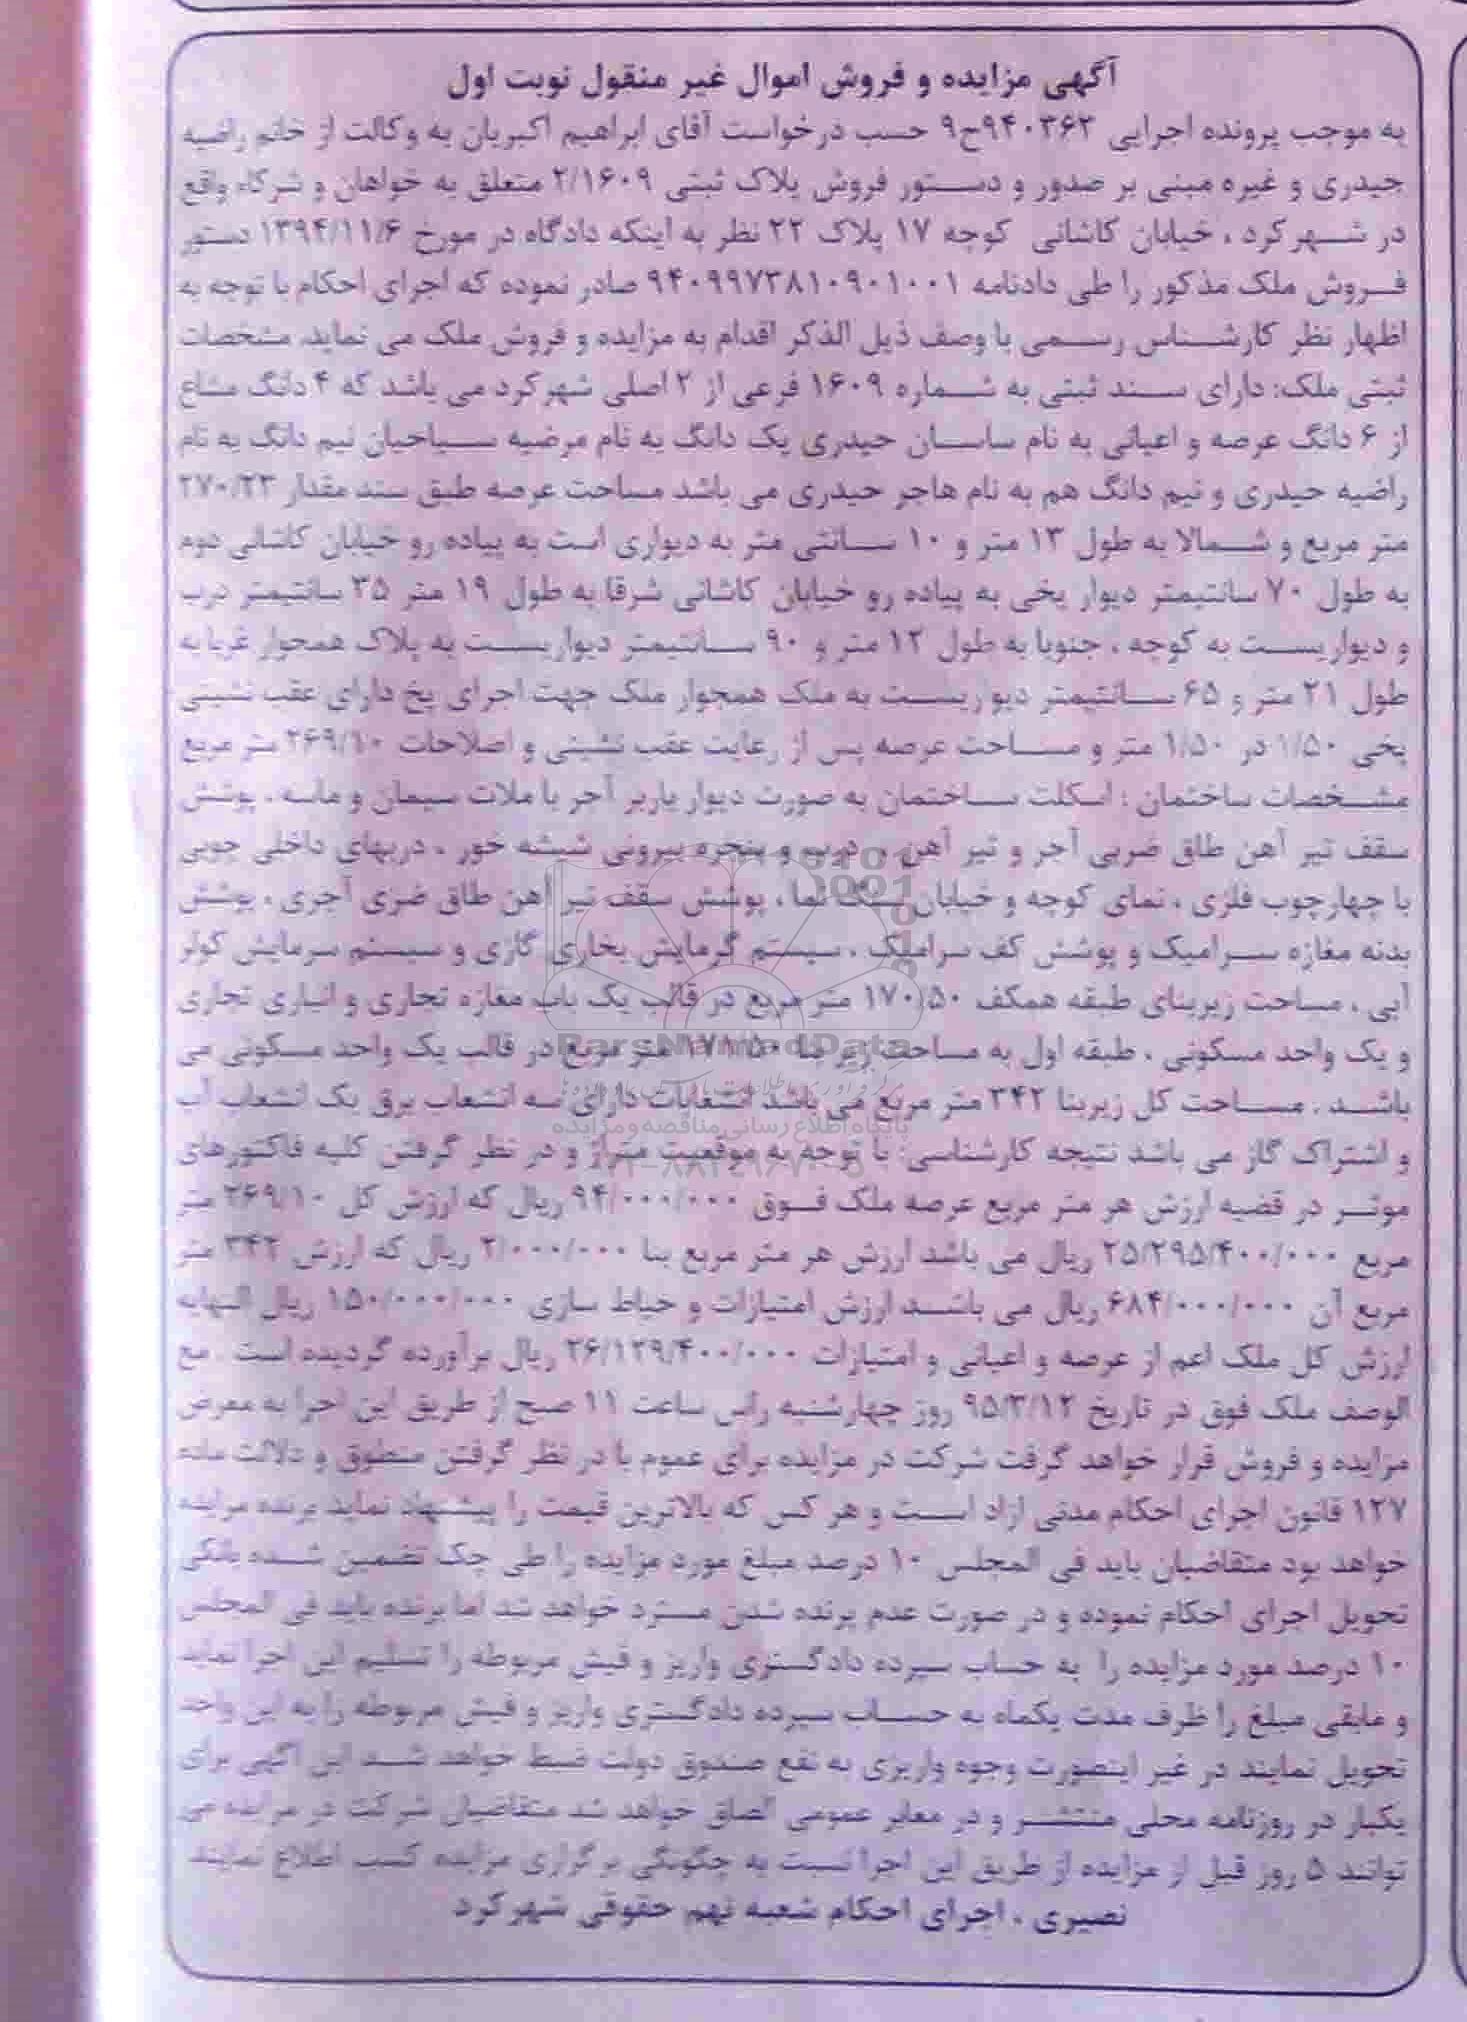 آگهی مزایده و فروش اموال غیر منقول نوبت اول
به موجب پرونده اجرایی ۹۴۰۳۶۲ح۹ حسب درخواست آقای ابراهیم اکبریان به وکالت از خانم راضیه
حیدری و غیره مبنی بر صدور و دستور فروش پلاک ثبتی ۲/۱۶۰۹ متعلق به خواهان و شرکاء واقع
در شهرکرد ، خیابان کاشانی کوچه ۱۷ پلاک ۲۲ نظر به اینکه دادگاه در مورخ ۱۳۹۴/۱۱/۶ دستور
فروش ملک مذکور را طی دادنامه ۹۴۰۹۹۷۳۸۱۰۹۰۱۰۰۱ صادر نموده که اجرای احکام با توجه به
اظهار نظر کارشناس رسمی با وصف ذیل الذکر اقدام به مزایده و فروش ملک می نماید. مشخصات
ثبتی ملک: دارای سند ثبتی به شماره ۱۶۰۹ فرعی از ۲ اصلی شهرکرد می باشد که ۴ دانگ مشاع
از ۶ دانگ عرصه و اعیانی به نام ساسان حیدری یک دانگ به نام مرضیه سیاحیان نیم دانگ به نام
راضیه حیدری و نیم دانگ هم به نام هاجر حیدری می باشد مساحت عرصه طبق سند مقدار ۲۷۰/۲۳
متر مربع و شمالا به طول ۱۳ متر و ۱۰ سانتی متر به دیواری است به پیاده رو خیابان کاشانی دوم
به طول ۷۰ سانتیمتر دیوار یخی به پیاده رو خیابان کاشانی شرقا به طول ۱۹ متر ۳۵ سانتیمتر درب
و دیواریست به کوچه ، جنوبا به طول ۱۲ متر و ۹۰ سانتیمتر دیواریست به پلاک همجوار غربا به
طول ۲۱ متر و ۶۵ سانتیمتر دیواریست به ملک همجوار ملک جهت اجرای پخ دارای عقب نشینی
پخی ۱/۵۰ در ۱/۵۰ متر و مساحت عرصه پس از رعایت عقب نشینی و اصلاحات ۲۶۹/۱۰ متر مربع
مشخصات ساختمان : اسکلت ساختمان به صورت دیوار باربر آجر با ملات سیمان و ماسه ، پوشش
سقف تیر آهن طاق ضربی آجر و تیر آهن ، درب و پنجره بیرونی شیشه خور ، دربهای داخلی چوبی
با چهارچوب فلزی ، نمای کوچه و خیابان سنگ نما ، پوشش سقف تیر آهن طاق ضری آجری ، پوشش
بدنه مغازه سرامیک و پوشش کف سرامیک ، سیستم گرمایش بخاری گازی و سیستم سرمایش کولر
آبی ، مساحت زیربنای طبقه همکف ۱۷۰/۵۰ متر مربع در قالب یک باب مغازه تجاری و انباری تجاری
و یک واحد مسکونی ، طبقه اول به مساحت زیر بنا ۱۷۱/۵۰ متر مربع در قالب یک واحد مسکونی می
باشد . مساحت کل زیربنا ۳۴۲ متر مربع می باشد انشعابات دارای سه انشعاب برق یک انشعاب آب
و اشتراک گاز می باشد نتیجه کارشناسی: با توجه به موقعیت متراژ و در نظر گرفتن کلیه فاکتورهای
موثر در قضیه ارزش هر متر مربع عرصه ملک فوق ۹۴/۰۰۰/۰۰۰ ریال که ارزش کل ۲۶۹/۱۰ متر
مربع ۲۵/۲۹۵/۴۰۰/۰۰۰ ریال می باشد ارزش هر متر مربع بنا ۲/۰۰۰/۰۰۰ ریال که ارزش ۳۴۲ متر
مربع آن ۶۸۴/۰۰۰/۰۰۰ ریال می باشد ارزش امتیازات و حیاط سازی ۱۵۰/۰۰۰/۰۰۰ ریال النهایه
ارزش کل ملک اعم از عرصه و اعیانی و امتیازات ۲۶/۱۲۹/۴۰۰/۰۰۰ ریال برآورده گردیده است . مع
الوصف ملک فوق در تاریخ ۹۵/۳/۱۲ روز چهارشنبه راس ساعت ۱۱ صبح از طریق این اجرا به معرض
مزایده و فروش قرار خواهد گرفت شرکت در مزایده برای عموم با در نظر گرفتن منطوق و دلالت ماده
۱۲۷ قانون اجرای احکام مدنی ازاد است و هر کس که بالاترین قیمت را پیشنهاد نماید برنده مزایده
خواهد بود متقاضیان باید فی المجلس ۱۰ درصد مبلغ مورد مزایده را طی چک تضمین شده بانکی
تحویل اجرای احکام نموده و در صورت عدم برنده شدن مسترد خواهد شد اما برنده باید فی المجلس
۱۰ درصد مورد مزایده را به حساب سپرده دادگستری واریز و فیش مربوطه را تسلیم این اجرا نماید
و مابقی مبلغ را ظرف مدت یکماه به حساب سپرده دادگستری واریز و فیش مربوطه را به این واحد
تحویل نمایند در غیر اینصورت وجوه واریزی به نفع صندوق دولت ضبط خواهد شد این آگهی برای
یکبار در روزنامه محلی منتشر و در معابر عمومی الصاق خواهد شد متقاضیان شرکت در مزایده می
توانند ۵ روز قبل از مزایده از طریق این اجرا نسبت به چگونگی برگزاری مزایده کسب اطلاع نمایند
نصیری ، اجرای احکام شعبه نهم حقوقی شهرکرد
ParsNamadData
پایگاه اطلاع رسانی مناقصه و مزایده